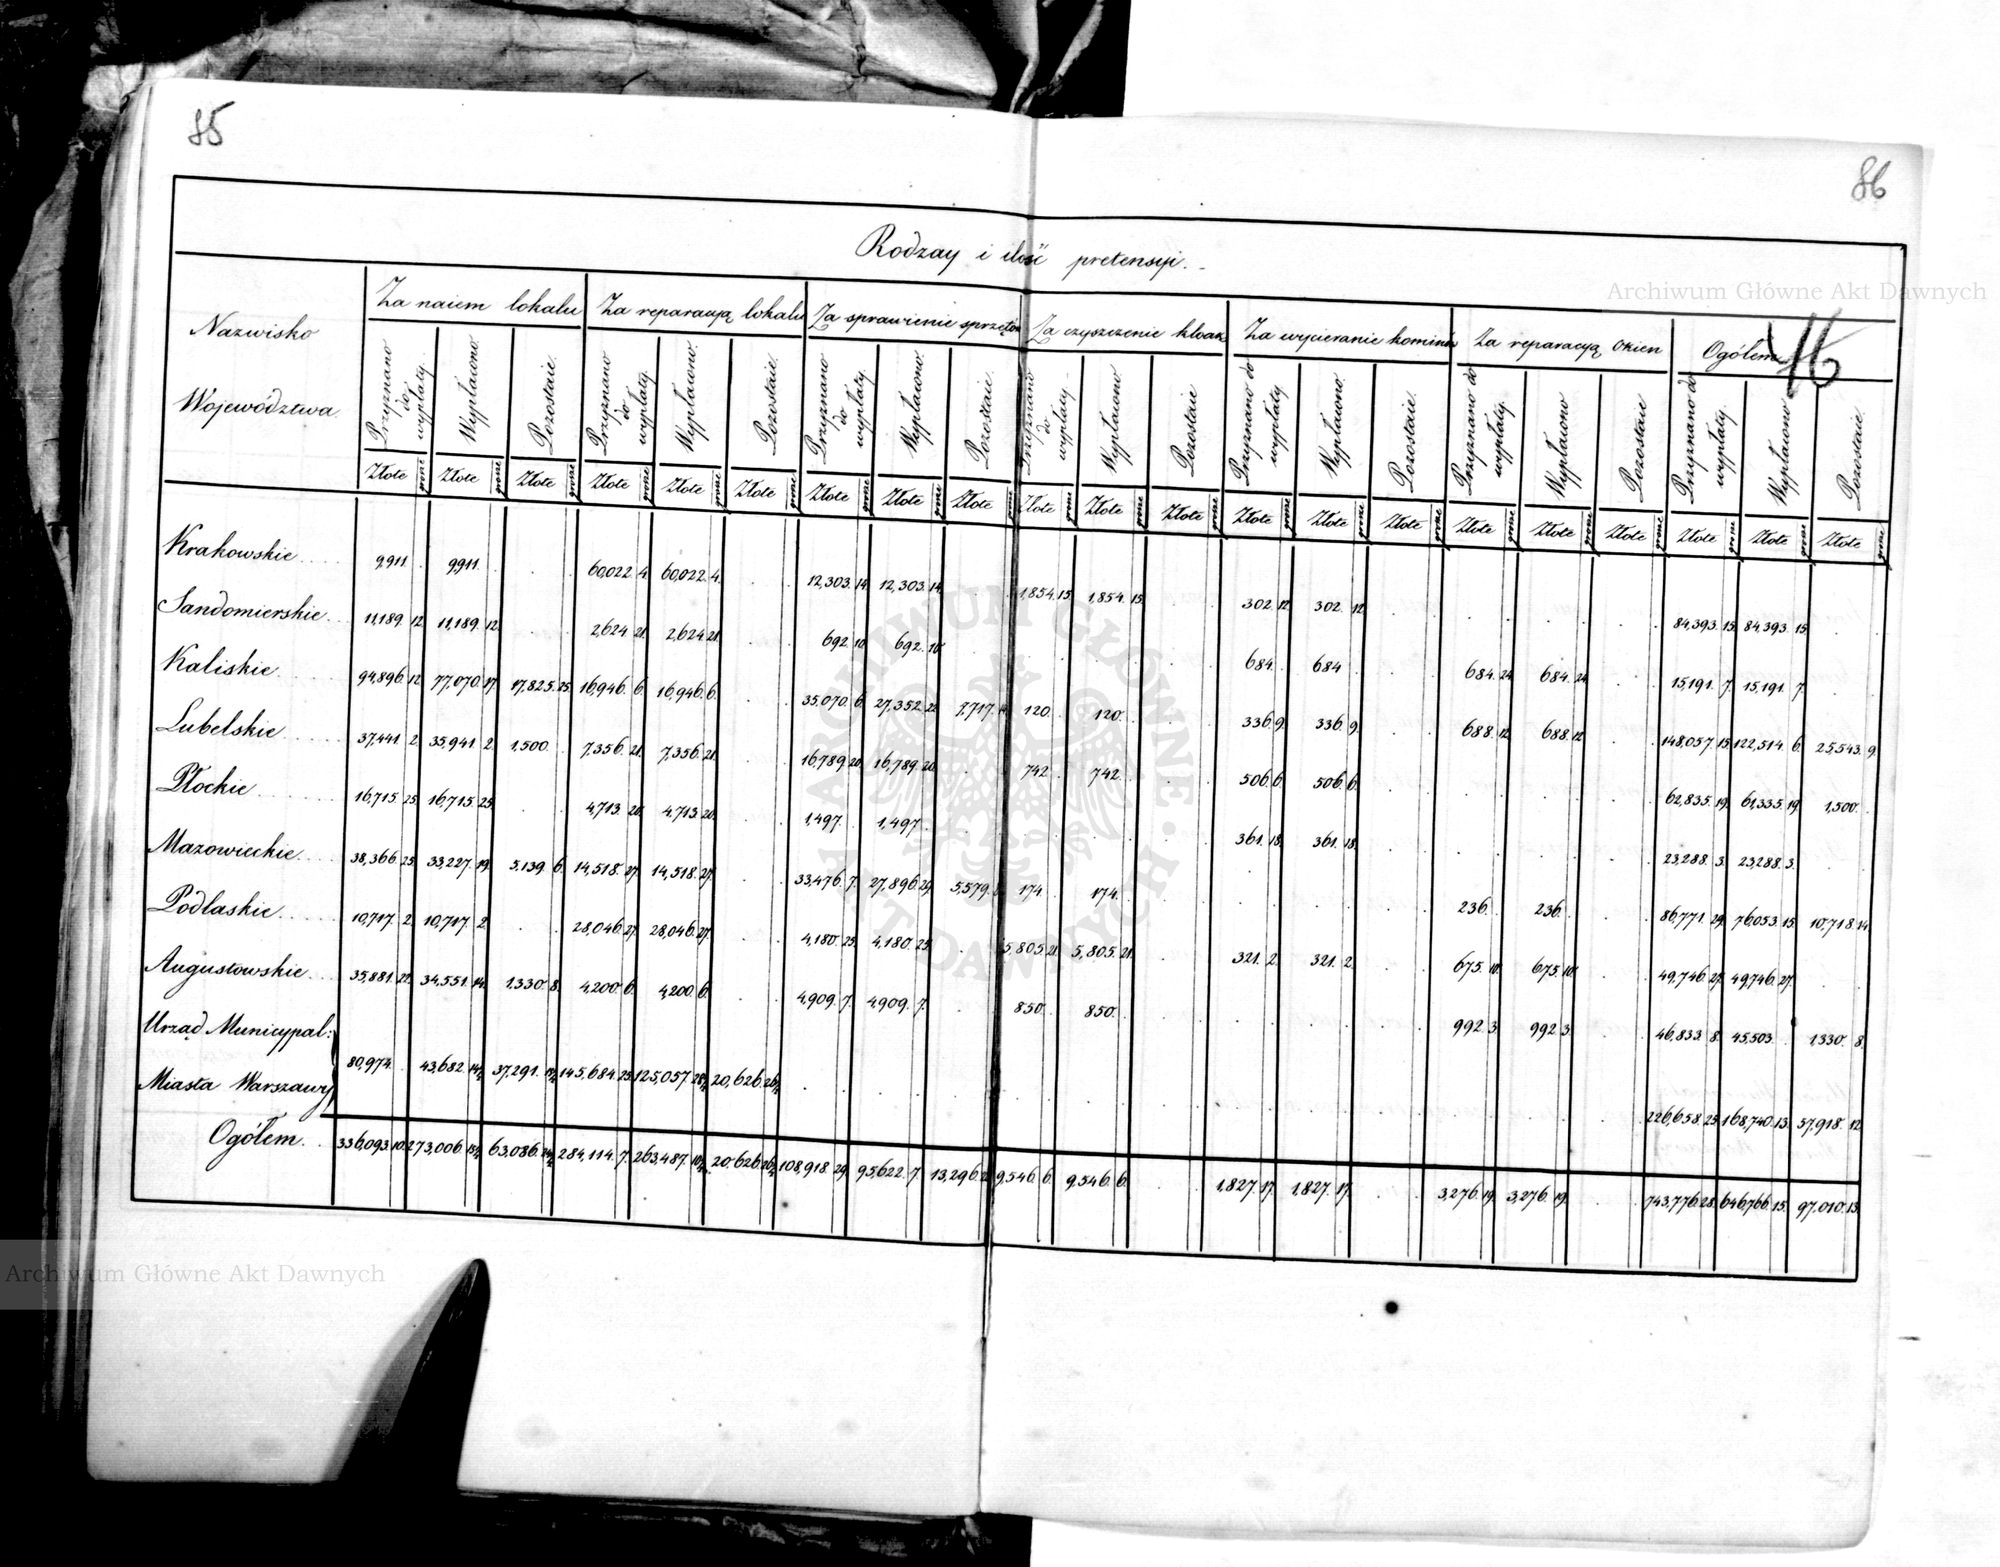 85
86
Archiwum Główne Akt Dawnych
16
Rodzay i ilość pretensyi.
Nazwisko Województwa
Za naiem lokalu Za reparacyą lokalu Za sprawienie sprzętów Za czyszczenie kloak Za wycieranie kominów Za reparacyą okien Ogółem
Przyznano do wypłaty. Wypłacono. Pozostaie. Przyznano do wypłaty. Wypłacono. Pozostaie. Przyznano do wypłaty. Wypłacono. Pozostaie. Przyznano do wypłaty. Wypłacono. Pozostaie Przyznano do wypłaty. Wypłacono. Pozostaie. Przyznano do wypłaty. Wypłacono Pozostaie Przyznano do wypłaty. Wypłacono Pozostaie.
Złote grosze Złote grosze Złote grosze Złote grosze Złote grosze Złote grosze Złote grosze Złote grosze Złote grosze Złote grosze Złote grosze Złote grosze Złote grosze Złote grosze Złote grosze Złote grosze Złote grosze Złote grosze Złote grosze Złote grosze Złote grosze
Krakowskie 9,911. 9,911. 60,022. 4. 60,022. 4. 12,303. 14. 12,303. 14. 1,854. 15. 1,854. 15. 302. 12. 302. 12. 84,393. 15. 84,393. 15.
Sandomierskie 11,189. 12. 11,189. 12. 2,624. 21. 2,624. 21. 692. 10. 692. 10. 684. 684. 15,191. 7. 15,191. 7.
Kaliskie 94,896. 12. 77,070. 17. 17,825. 25. 16,946. 6. 16,946. 6. 35,070. 6. 27,352. 22. 7,717. 14. 120. 120. 336. 9. 336. 9. 684. 24. 684. 24. 148,057. 15. 122,514. 6. 25,543. 9.
Lubelskie 37,441. 2. 35,941. 2. 1,500. 7,356. 21. 7,356. 21. 16,789. 20. 16,789. 20. 742. 742. 506. 6. 506. 6. 688. 12. 688. 12. 62,835. 19. 61,335. 19. 1,500.
Płockie 16,715. 25. 16,715. 25. 4,713. 20. 4,713. 20. 1,497. 1,497. 361. 18. 361. 18. 23,288. 3. 23,288. 3.
Mazowieckie 38,366. 25. 33,227. 19. 5,139. 6. 14,518. 27. 14,518. 27. 33,476. 7. 27,896. 29. 5,579. 8. 174. 174. 236. 236. 86,771. 29. 76,053. 15. 10,718. 14.
Podlaskie 10,717. 2. 10,717. 2. 28,046. 27. 28,046. 27. 4,180. 25. 4,180. 25. 5,805. 21. 5,805. 21. 321. 2. 321. 2. 675. 10. 675. 10. 49,746. 27. 49,746. 27.
Augustowskie 35,881. 22. 34,551. 14. 1,330. 8. 4,200. 6. 4,200. 6. 4,909. 7. 4,909. 7. 850. 850. 992. 3. 992. 3. 46,833. 8. 45,503. 1,330. 8.
Urząd Municypal:
Miasta Warszawy 80,974. 43,682. 37,291. 145,684. 25. 125,057. 20,626. 226,658. 25. 168,740. 13. 57,918. 12.
Ogółem 336,093. 10. 273,006. 63,086. 284,114. 7. 263,487. 20,626. 108,918. 29. 95,622. 7. 13,296. 22. 9,546. 6. 9,546. 6. 1,827. 17. 1,827. 17. 3,276. 19. 3,276. 19. 743,776. 28. 646,766. 15. 97,010. 13.
ARCHIWUM GŁÓWNE AKT DAWNYCH
Archiwum Główne Akt Dawnych